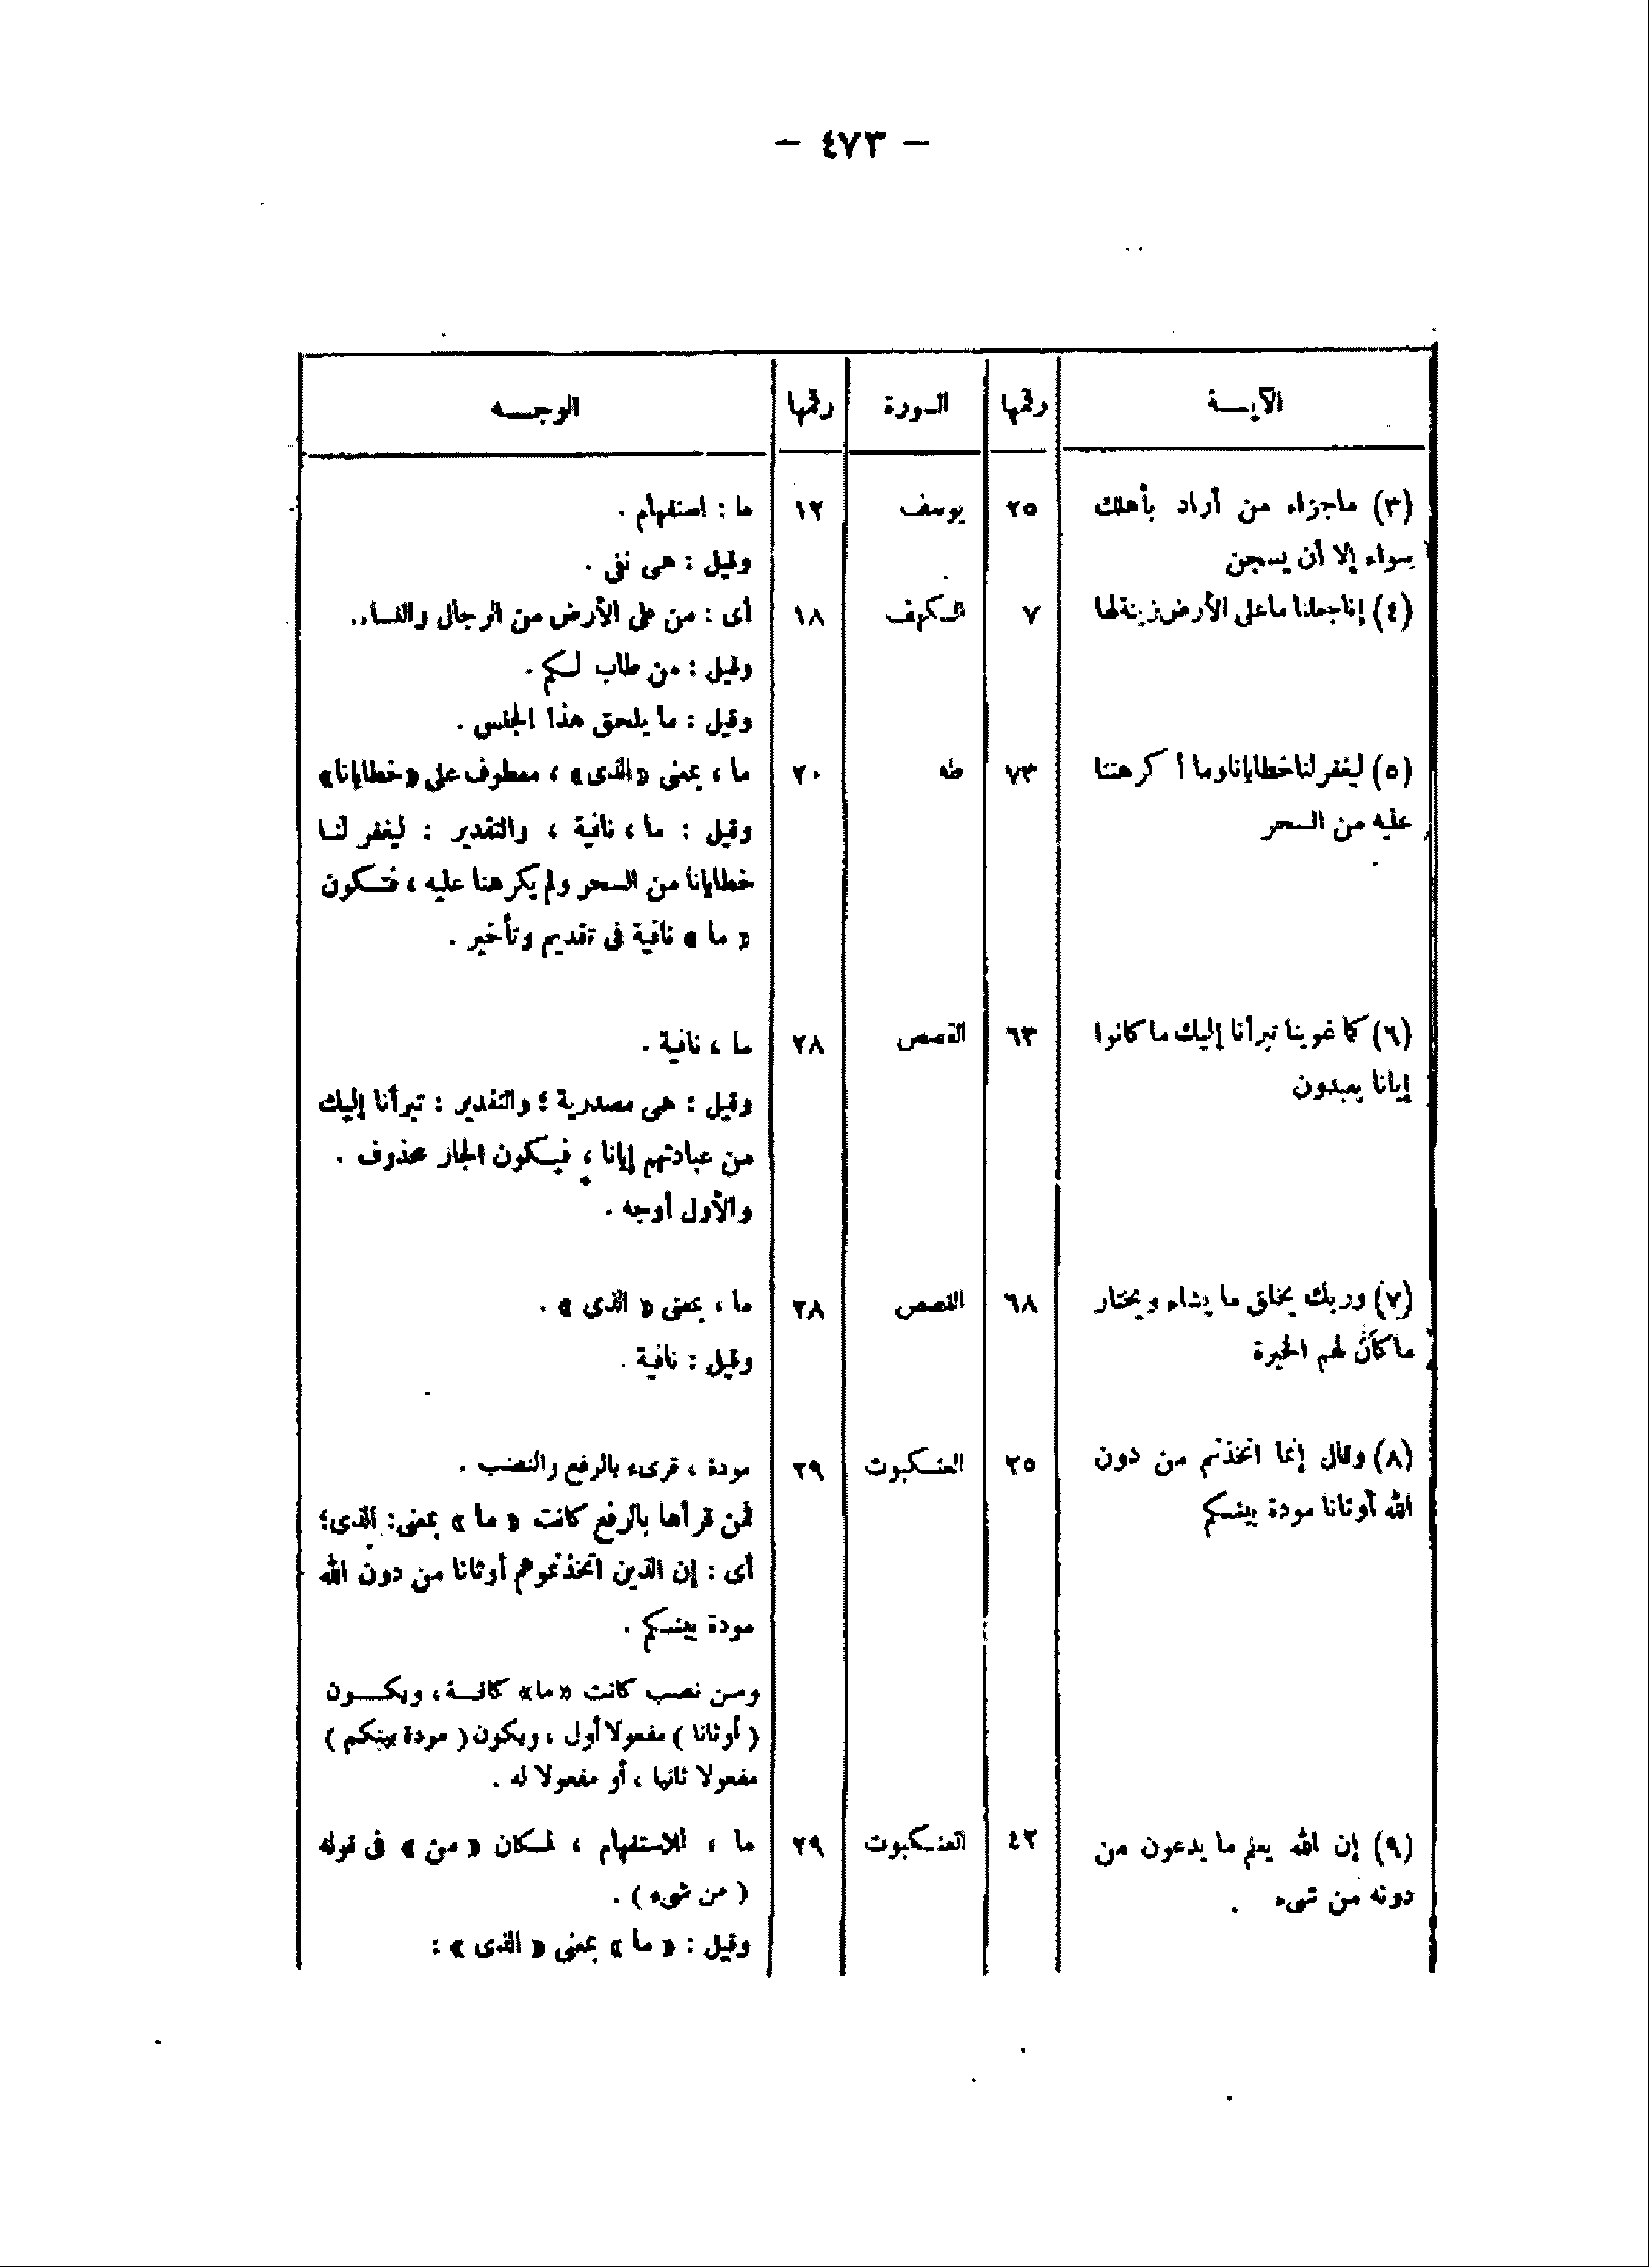 — ٤٧٣ —
الآيــة رقمها السورة رقمها الوجــه
(٣) ماجزاء من أراد بأهلك ٢٥ يوسف ١٢ ما : استفهام .
سواء إلا أن يسجن وقيل : هى نفى .
(٤) إناجعلنا ماعلى الأرض زينة لها ٧ الكهف ١٨ أى : من على الأرض من الرجال والنساء.
وقيل : من طاب لكم .
وقيل : ما يلحق هذا الجنس .
(٥) ليغفر لنا خطايانا وما أ كرهتنا ٧٣ طه ٢٠ ما ، بمعنى «الذى» ، معطوف على «خطايانا»
عليه من السحر وقيل : ما ، نافية ، والتقدير : ليغفر لنا
خطايانا من السحر ولم يكرهنا عليه ، فتكون
« ما » نافية فى تقديم وتأخير .
(٦) كما غوينا تبرأنا إليك ما كانوا ٦٣ القصص ٢٨ ما ، نافية .
إيانا يعبدون وقيل : هى مصدرية ؛ والتقدير : تبرأنا إليك
من عبادتهم إيانا ، فيكون الجار محذوف .
والأول أوجه .
(٧) وربك يخلق ما يشاء ويختار ٦٨ القصص ٢٨ ما ، بمعنى « الذى » .
ما كان لهم الخيرة وقيل : نافية .
(٨) وقال إنما اتخذتم من دون ٢٥ العنكبوت ٢٩ مودة ، قرىء بالرفع والنصب .
الله أوثانا مودة بينكم فمن قرأها بالرفع كانت « ما » بمعنى: الذى؛
أى : إن الذين اتخذتموهم أوثانا من دون الله
مودة بينكم .
ومن نصب كانت «ما» كافـة ، ويكــون
( أوثانا ) مفعولا أول ، ويكون ( مودة بينكم )
مفعولا ثانيا ، أو مفعولا له .
(٩) إن الله يعلم ما يدعون من ٤٢ العنكبوت ٢٩ ما ، للاستفهام ، لمكان « من » فى قوله
دونه من شىء ( من شىء ) .
وقيل : « ما » بمعنى « الذى » :